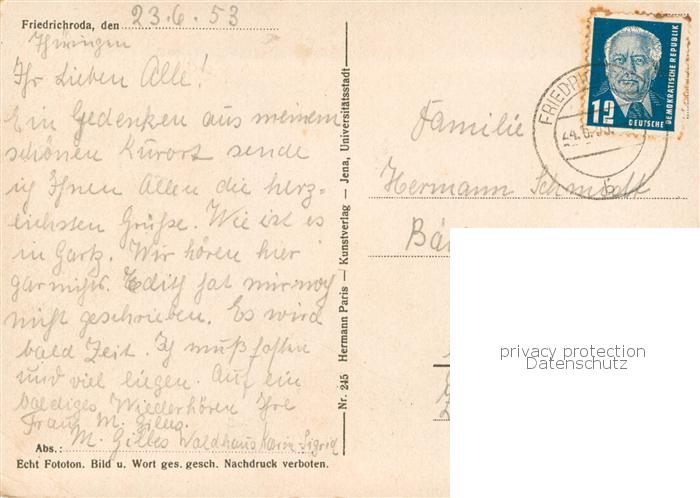 Friedrichroda, den 23.6.53
Thüringen
Ihr Lieben Alle!
Ein Gedenken aus meinem
schönen Kurort sende
ich Ihnen Allen die herz-
lichsten Grüße. Wie ist es
in Gartz. Wir hören hier
gar nichts. Edith hat mir noch
nicht geschrieben. Es wird
bald Zeit. Ich muß fasten
und viel liegen. Auf ein
baldiges Wiederhören Ihre
Frau M. Gilles.
Abs.: M. Gilles Waldhaus Sigrid
Echt Fototon. Bild u. Wort ges. gesch. Nachdruck verboten.
Nr. 245 Hermann Paris — Kunstverlag — Jena, Universitätsstadt
Familie
Hermann Schmidt
Bä
FRIEDRI
24.6.53
12
DEUTSCHE
DEMOKRATISCHE REPUBLIK
privacy protection
Datenschutz